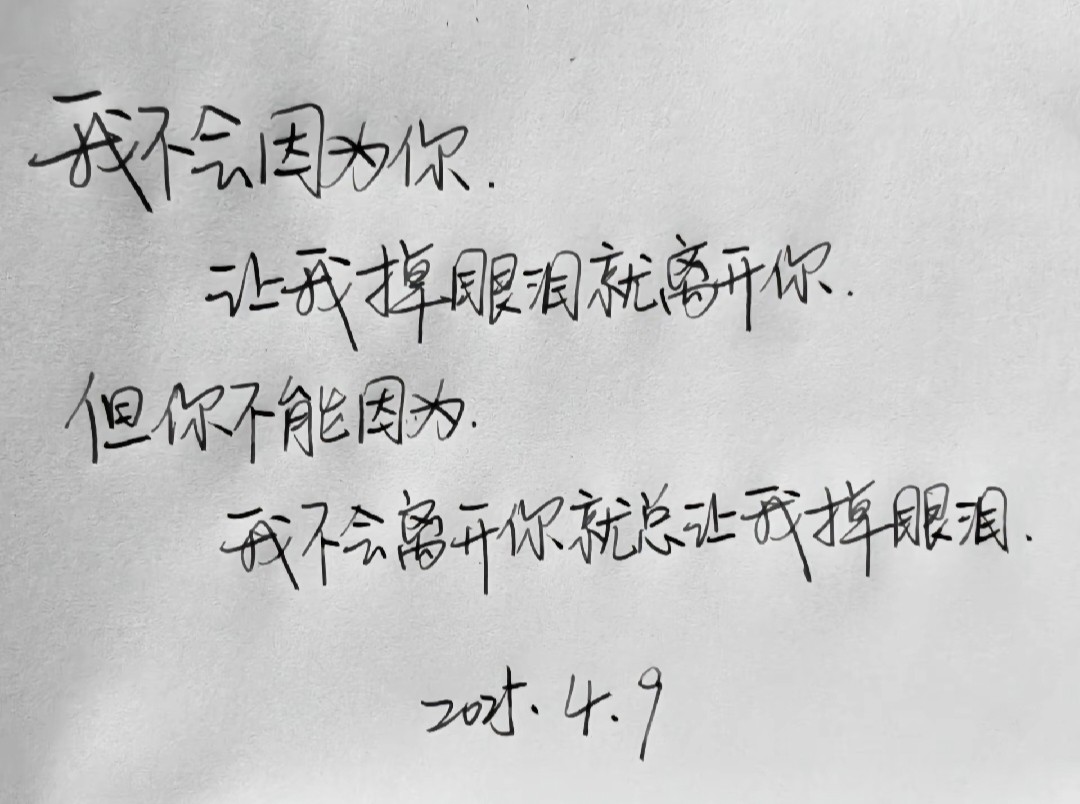 我不会因为你.
让我掉眼泪就离开你.
但你不能因为.
我不会离开你就总让我掉眼泪.
2025.4.9